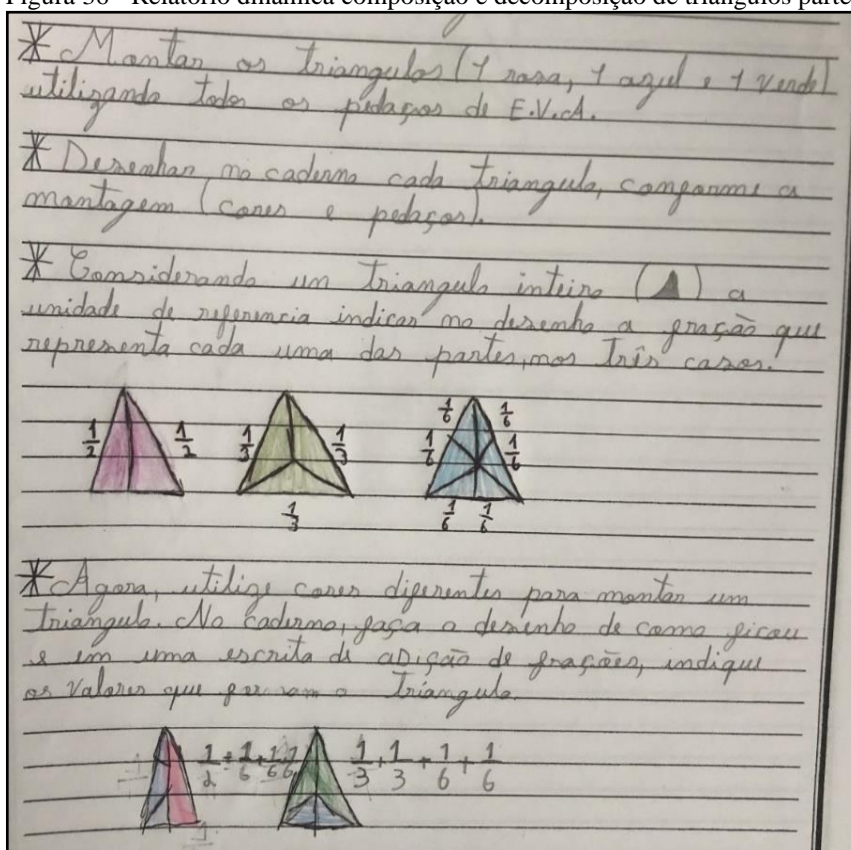 Figura 36 - Relatório dinâmica composição e decomposição de triângulos parte
* Montar os triangulos (1 rosa, 1 azul e 1 verde)
utilizando todos os pedaços de E.V.A.
* Desenhar, no caderno cada triangulo, conforme a
montagem (cores e pedaços).
* Considerando um triangulo inteiro ( ) a
unidade de referencia indicar no desenho a fração que
representa cada uma das partes, nos três casos.
1/2 1/2 1/3 1/3 1/3 1/6 1/6 1/6 1/6 1/6 1/6
* Agora, utilize cores diferentes para montar um
triangulo. No caderno, faça o desenho de como ficou
e em uma escrita de adição de frações, indique
os valores que formam o triangulo.
1/2 + 1/6 + 1/6 1/3 + 1/3 + 1/6 + 1/6